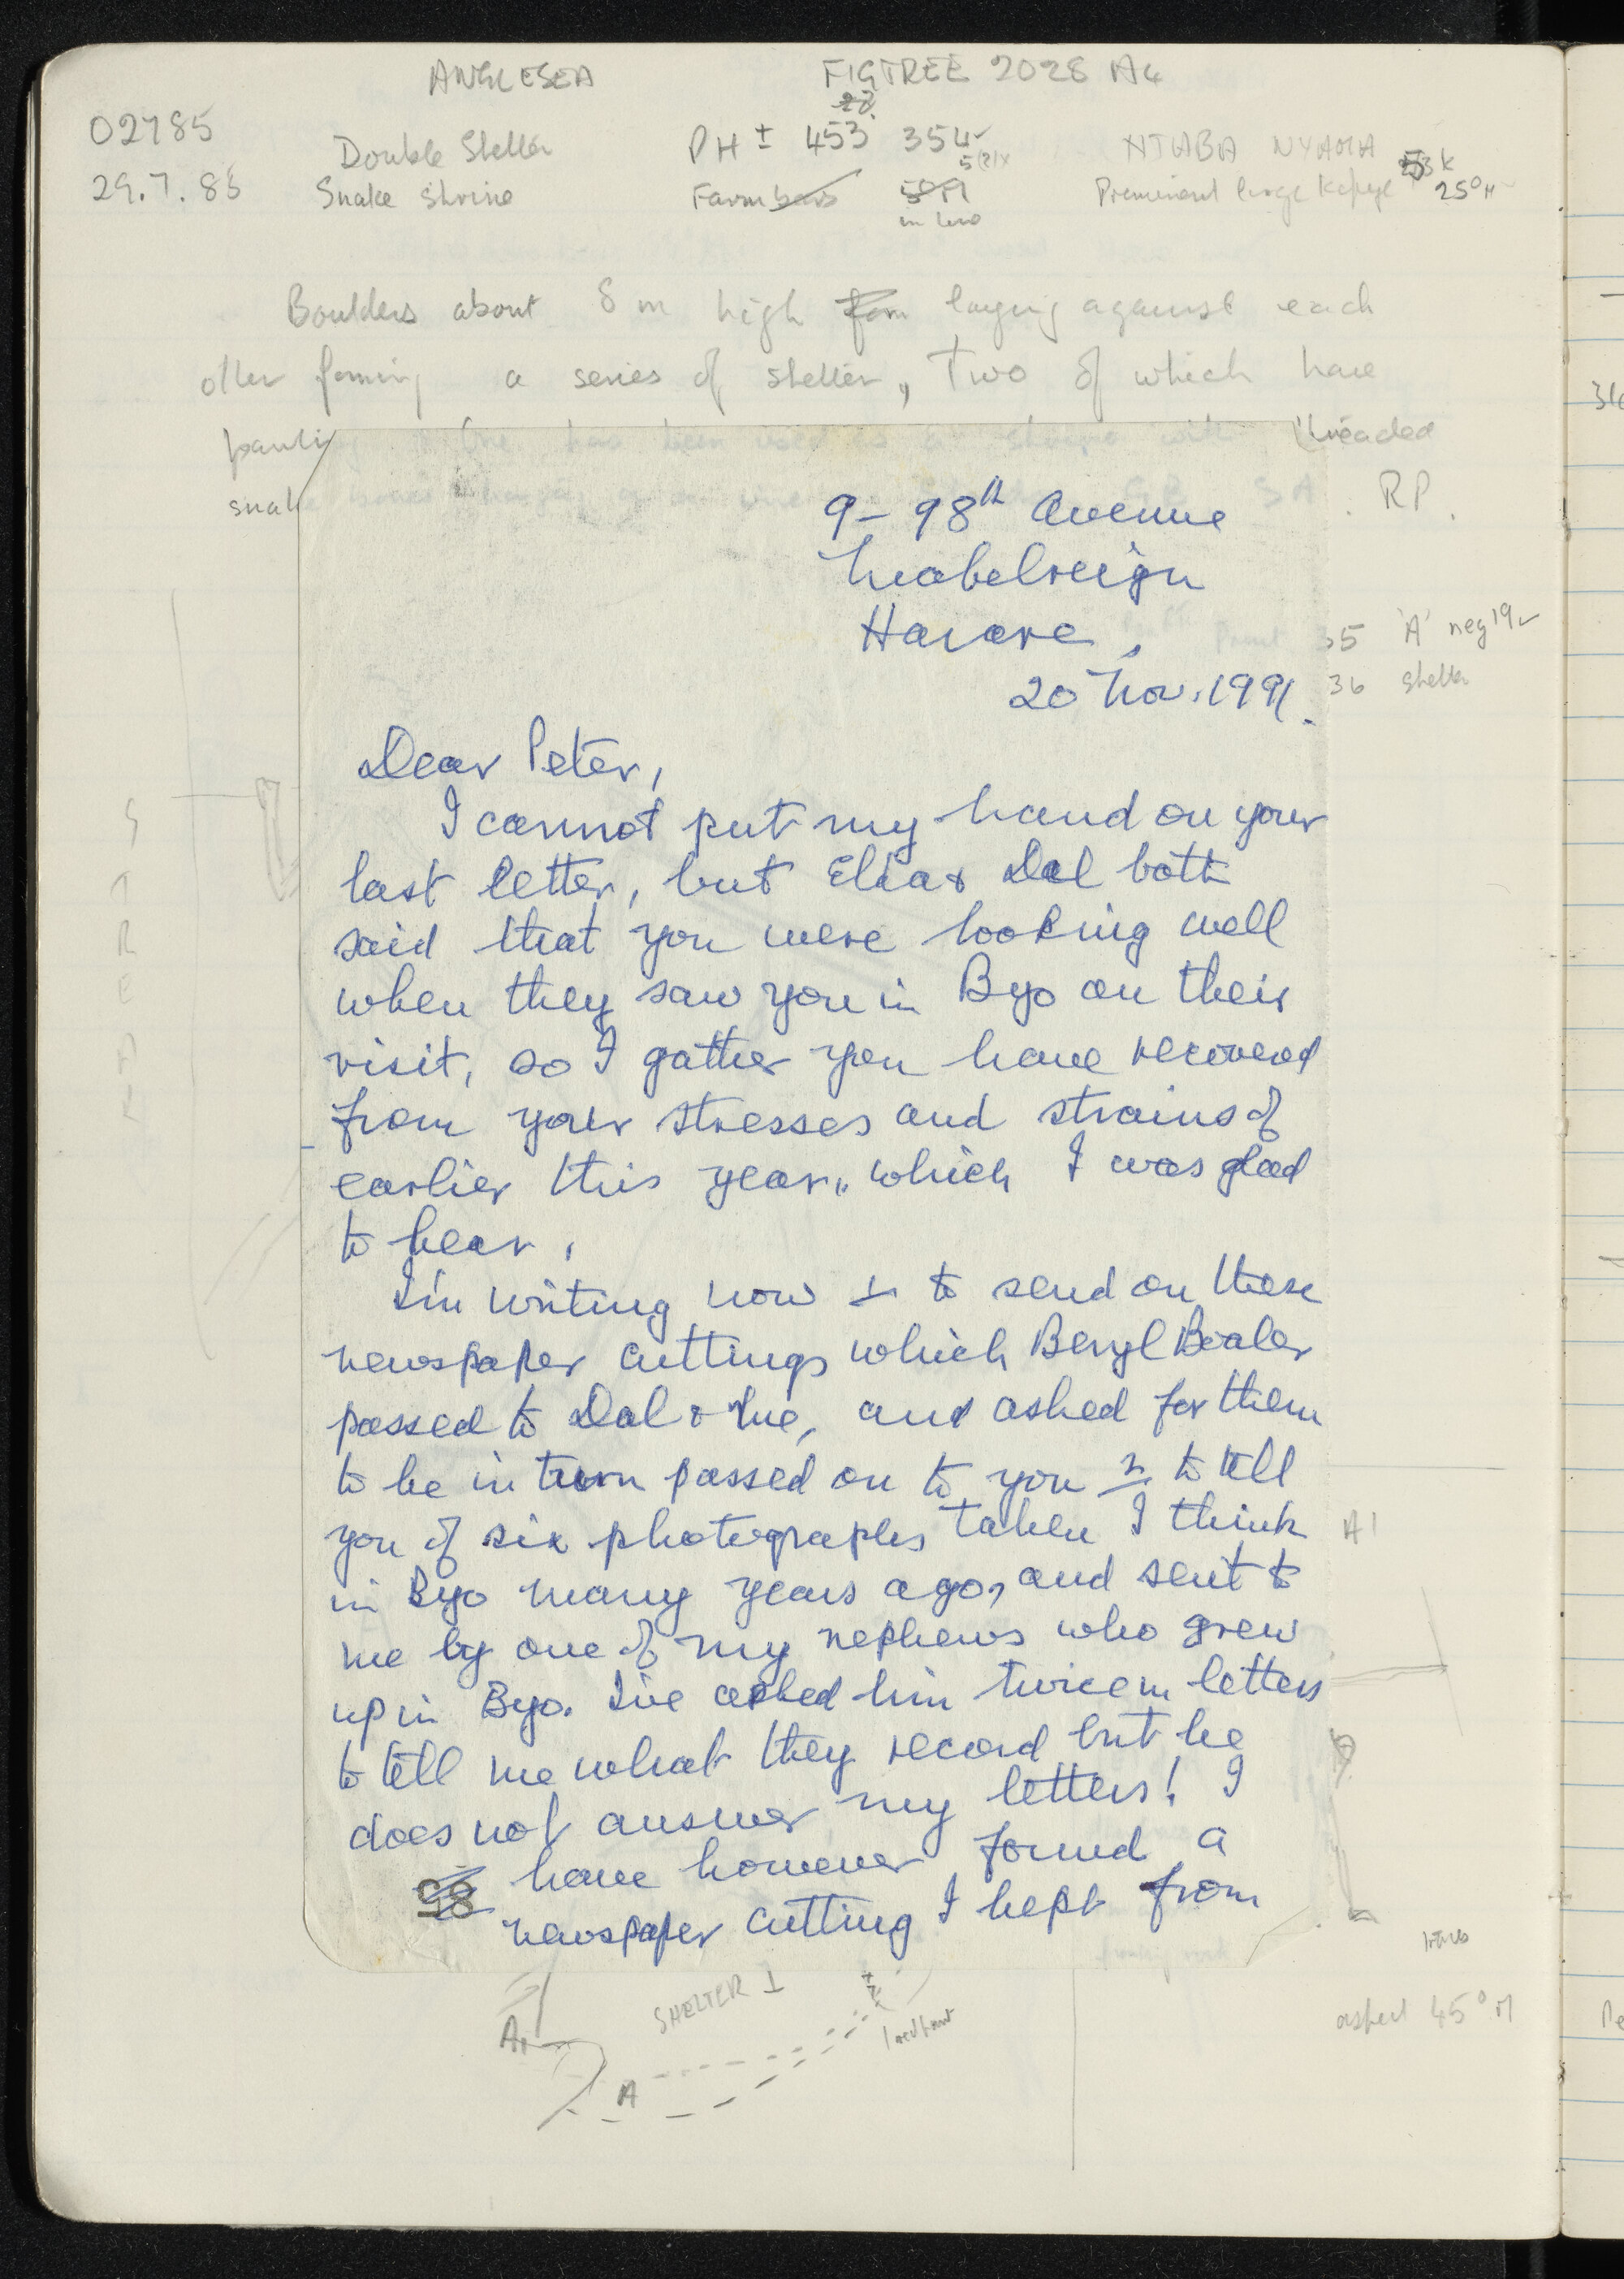 ANGLESEA FIGTREE 2028 A4
02785 Double Shelter PH ± 453 354
29.7.85 Snake Shrine Farm in line Prominent large Kopje 250 M
NTABA NYAMA
Boulders about 8 m high laying against each
other forming a series of shelters, Two of which have
threaded
RP.
9 – 98th Avenue
Mabelreign
Harare,
35 'A' neg 19
20 Nov. 1991.
36 shelter
Dear Peter,
I cannot put my hand on your
last letter, but Elsa & Dal both
said that you were looking well
when they saw you in Byo on their
visit, so I gather you have recovered
from your stresses and strains of
earlier this year, which I was glad
to hear.
I'm writing now 1. to send on these
newspaper cuttings which Beryl Boaler
passed to Dal & me, and asked for them
to be in turn passed on to you 2. to tell
you of six photographs taken I think
in Byo many years ago, and sent to
me by one of my nephews who grew
up in Byo. I've asked him twice in letters
to tell me what they record but he
does not answer my letters! I
have however found a
newspaper cutting I kept from
85
STREAM
A1
SHELTER 1
A1
A
aspect 45° M